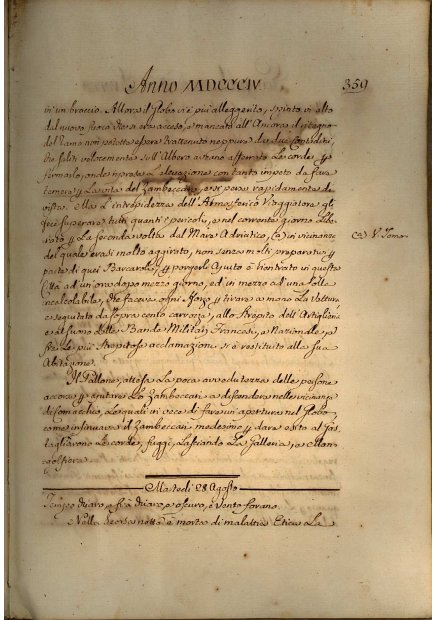 Anno MDCCCIV
359
in un braccio. Allora il Globo via più alleggerito, spinto in alto
dal nuovo fuoco che si era acceso, e mancato all'Ancora il ritegno
del Ramo non potette essere trattenuto neppure da due Contadini,
che saliti velocemente sull'Albero aveano afferrato le corde
fermarlo, onde riprese l'elevazione con tanto impeto da fare
temere la vita del Zambeccari, e si perse rapidamente di
vista. Ma l'intrepidezza dell'Atmosferico Viaggiatore
fece superare tutti quanti i pericoli, e nel corrente giorno
la seconda volta dal Mare Adriatico, (a) in vicinanze
del quale erasi molto aggirato, non senza molti preparativi
parte di quei Barcaroli, porgerli ajuto è rientrato in questa
Città ad un'ora dopo mezzo giorno, ed in mezzo ad una folla
incalcolabile, che faceva ogni sforzo tirare a mano la Vettura
eseguitato da sopra cento carrozze, allo strepito dell'Artiglieria
e al suono delle Bande Militari Francesi, e Nazionale,
le più strepitose acclamazioni si è restituito alla sua
Abitazione.
(a) V. Tomo
Il Pallone, attesa la poca avvedutezza delle persone
accorse ajutare lo Zambeccari a discendere nelle vicinanze
di Comacchio, le quali in vece di fare un'apertura nel Globo,
come insinuava il Zambeccari medesimo dare esito al Gas,
tagliarono le corde, fuggì, lasciando la Galleria, e
golfiera.
Martedì 28 Agosto
Tempo chiaro, e sera chiaro, e oscuro, e vento forano.
Nella scorsa notte è morta di malattia Etica La